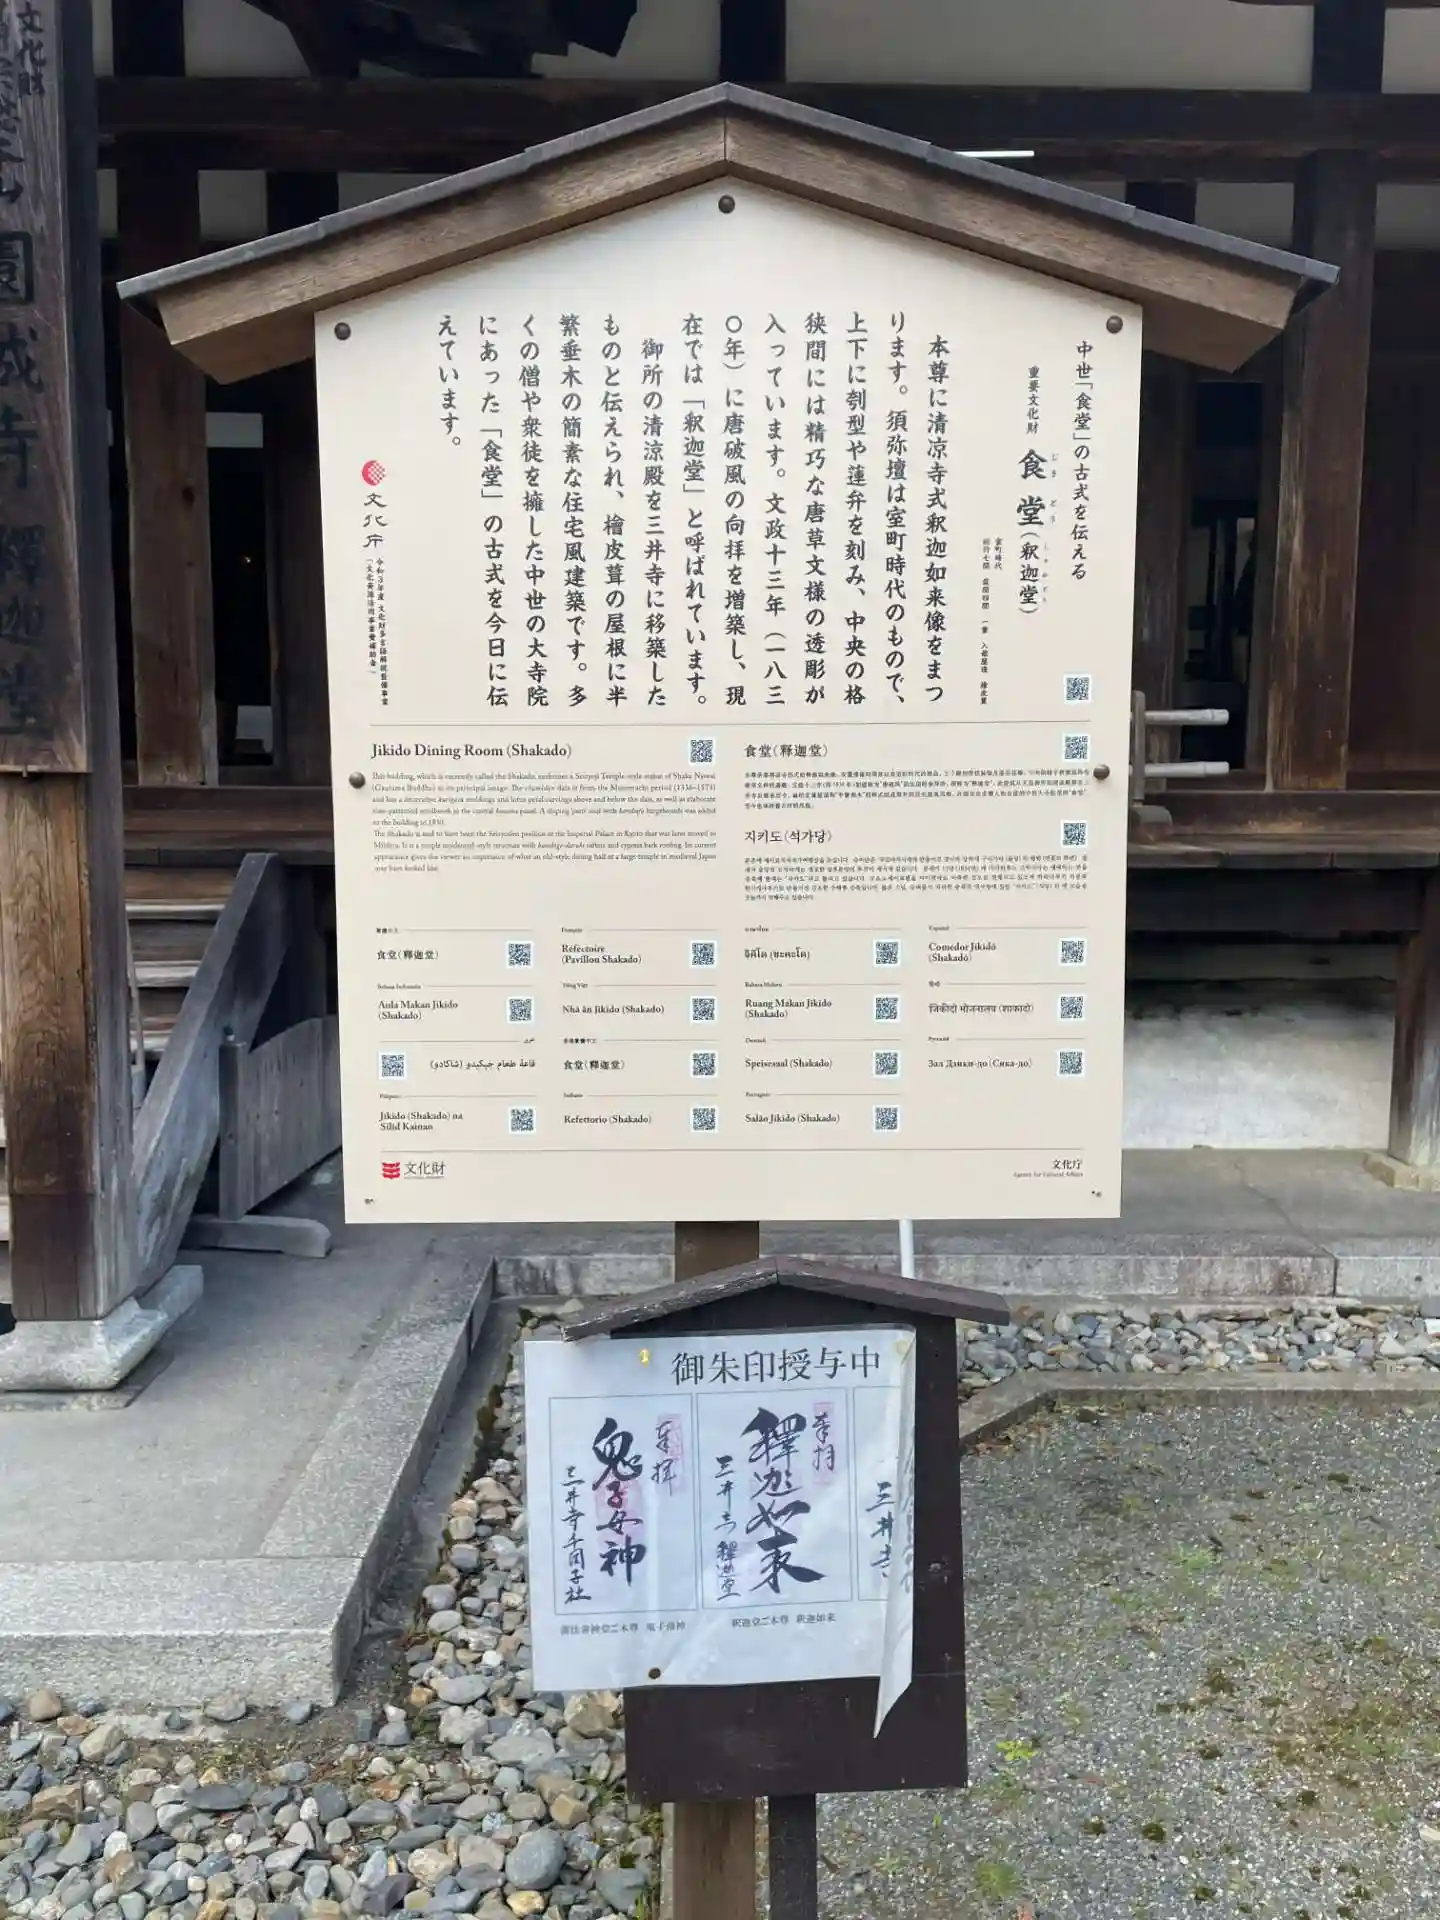 中世「食堂」の古式を伝える
重要文化財 食堂(釈迦堂)
じき どう しゃかどう
室町時代
桁行七間 梁間四間 一重 入母屋造 檜皮葺
本尊に清凉寺式釈迦如来像をまつ
ります。須弥壇は室町時代のもので、
上下に刳型や蓮弁を刻み、中央の格
狭間には精巧な唐草文様の透彫が
入っています。文政十三年(一八三
〇年)に唐破風の向拝を増築し、現
在では「釈迦堂」と呼ばれています。
御所の清涼殿を三井寺に移築した
ものと伝えられ、檜皮葺の屋根に半
繁垂木の簡素な住宅風建築です。多
くの僧や衆徒を擁した中世の大寺院
にあった「食堂」の古式を今日に伝
えています。
文化庁
令和3年度 文化財多言語解説整備事業
Jikido Dining Room (Shakado)
This building, which is currently called the Shakado, enshrines a Seiryoji Temple-style statue of Shaka Nyorai
(Gautama Buddha) as its principal image. The shumidan dais is from the Muromachi period (1336–1573)
and has a decorative kurigata moldings and lotus petal carvings above and below the dais, as well as elaborate
vine-patterned openwork in the central kozama panel. A sloping porch roof with karahafu bargeboards was added
to the building in 1830.
The Shakado is said to have been the Seiryoden pavilion at the Imperial Palace in Kyoto that was later moved to
Miidera. It is a simple residential-style structure with hanshige-daruki rafters and cypress bark roofing. Its current
appearance gives the viewer an impression of what an old-style dining hall at a large temple in medieval Japan
may have looked like.
食堂(释迦堂)
지키도(석가당)
繁體中文
食堂(釋迦堂)
Français
Réfectoire
(Pavillon Shakado)
ภาษาไทย
จิคิโด (ชะคะโด)
Español
Comedor Jikidō
(Shakadō)
Bahasa Indonesia
Aula Makan Jikido
(Shakado)
Tiếng Việt
Nhà ăn Jikido (Shakado)
Bahasa Melayu
Ruang Makan Jikido
(Shakado)
हिन्दी
जिकीदो भोजनालय (शाकादो)
عربي
قاعة طعام جيكيدو (شاكادو)
香港繁體中文
食堂(釋迦堂)
Deutsch
Speisesaal (Shakado)
Русский
Зал Дзики-до (Сяка-до)
Filipino
Jikido (Shakado) na
Silid Kainan
Italiano
Refettorio (Shakado)
Português
Salão Jikido (Shakado)
文化財
文化庁
Agency for Cultural Affairs
御朱印授与中
奉拝
鬼子母神
三井寺千団子社
奉拝
釋迦如来
三井寺 釋迦堂
三井寺
護法善神堂ご本尊 鬼子母神
釈迦堂ご本尊 釈迦如来
文化財
園城寺 釋迦堂